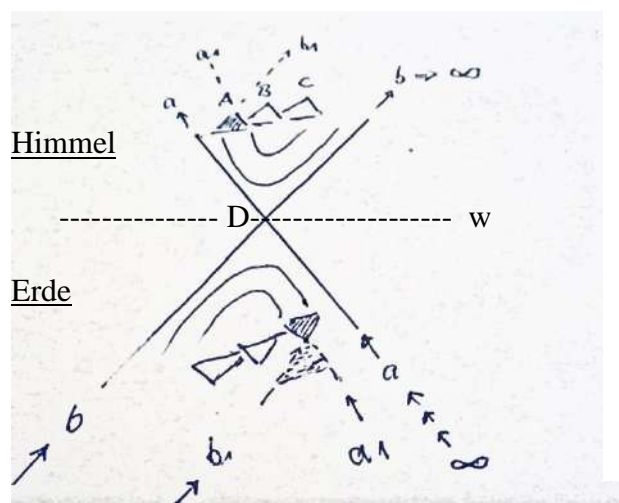 a1 b1
a A B C b → ∞
Himmel
D w
Erde
a
b b1 a1 ∞